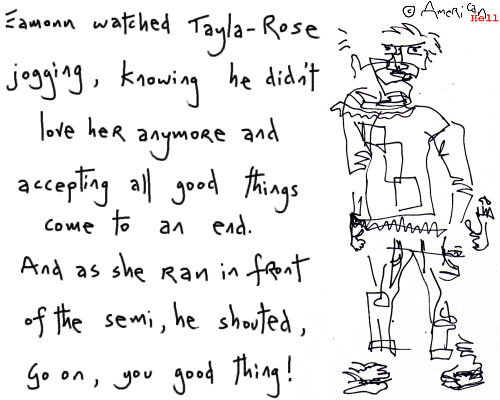 © American Hell
Eamonn watched Tayla-Rose
jogging, knowing he didn't
love her anymore and
accepting all good things
come to an end.
And as she ran in front
of the semi, he shouted,
Go on, you good thing!